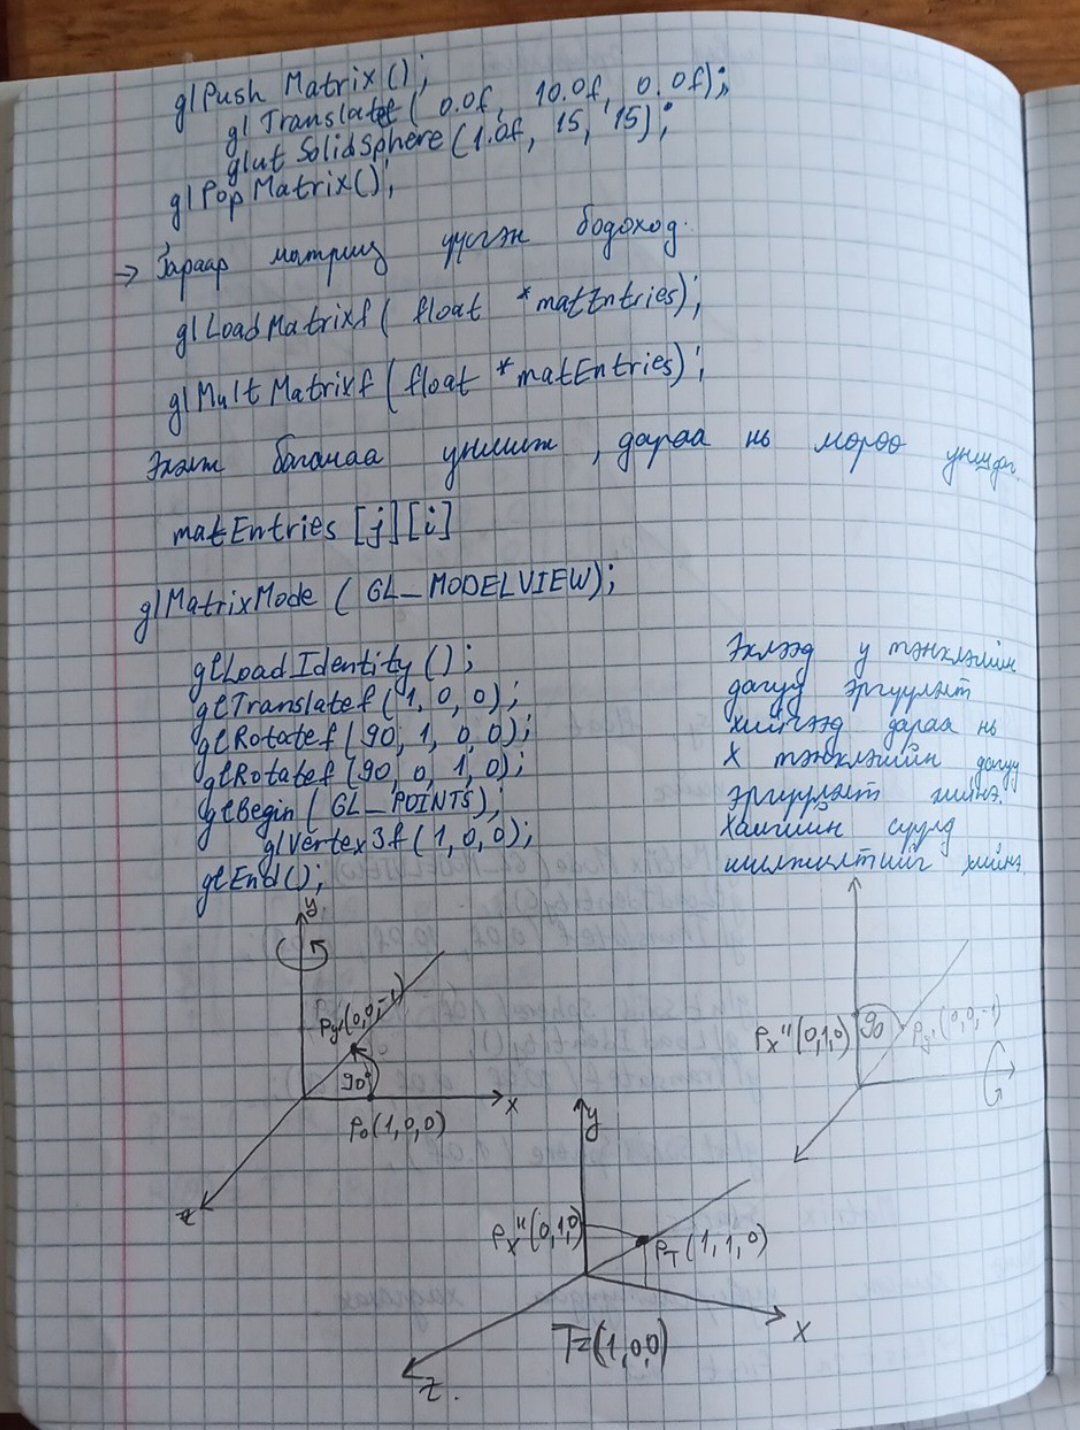 glPush Matrix();
gl Translatef( 0.0f, 10.0f, 0.0f);
glut SolidSphere(1.0f, 15, 15);
glPop Matrix();
→ Гараар матриц үүсгэн бодоход.
glLoadMatrixf( float *matEntries);
glMultMatrixf(float *matEntries);
Эхэлж баганаа уншиж, дараа нь мөрөө уншдаг.
matEntries [j][i]
glMatrixMode ( GL_MODELVIEW);
glLoadIdentity();
glTranslatef(1, 0, 0);
glRotatef(90, 1, 0, 0);
glRotatef(90, 0, 1, 0);
glBegin( GL_POINTS);
glVertex3f(1, 0, 0);
glEnd();
Эхлээд y тэнхлэгийн
дагуу эргүүлэлт
хийгээд дараа нь
X тэнхлэгийн дагуу
эргүүлэлт хийнэ.
Хамгийн сүүлд
шилжилтийг хийнэ.
y
Py'(0,0,-1)
90°
P0(1,0,0)
x
z
Px"(0,1,0)
90
Py'(0,0,-1)
y
Px"(0,1,0)
PT(1,1,0)
T=(1,0,0)
x
z.